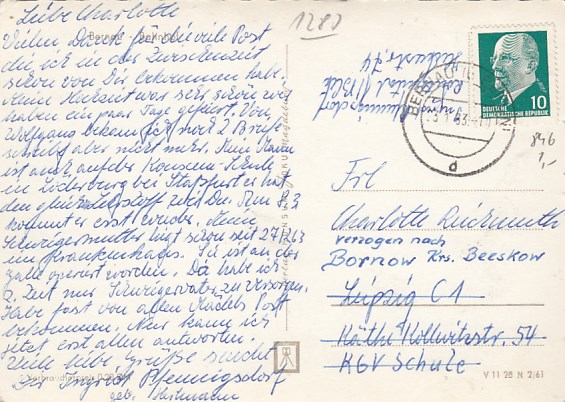 Liebe Charlotte
Vielen Dank für die viele Post
die ich in der Zwischenzeit
schon von Dir bekommen habe.
Meine Hochzeit war sehr schön wir
haben ein paar Tage gefeiert. Von
Wolfgang bekam ich noch 2 Briefe
schreibt aber nicht mehr. Mein Mann
ist auch auf der Konsum-Schule
in bei Staßfurt er hat
den zur Zeit Am 8.3
kommt er erst wieder. Meine
Schwiegermutter liegt schon seit 27.1.63
im Krankenhaus. Sie ist an der
Galle operiert worden. Da habe ich
z. Zeit nur Schwiegervater zu versorgen.
Habe fast von allen Mädels Post
bekommen. Nun kann ich
jetzt erst allen antworten.
Viele liebe Grüße sendet
Dir Ingrid Pfennigsdorf
geb.
Bernau Bahnhof
1280
BERNAU
63
d
10
DEUTSCHE
DEMOKRATISCHE REPUBLIK
846
1,-
Frl
Charlotte Reichmuth
verzogen nach
Bornow Krs. Beeskow
Leipzig C1
Käthe Kollwitzstr. 54
KGV Schule
V 11 28 N 2/61